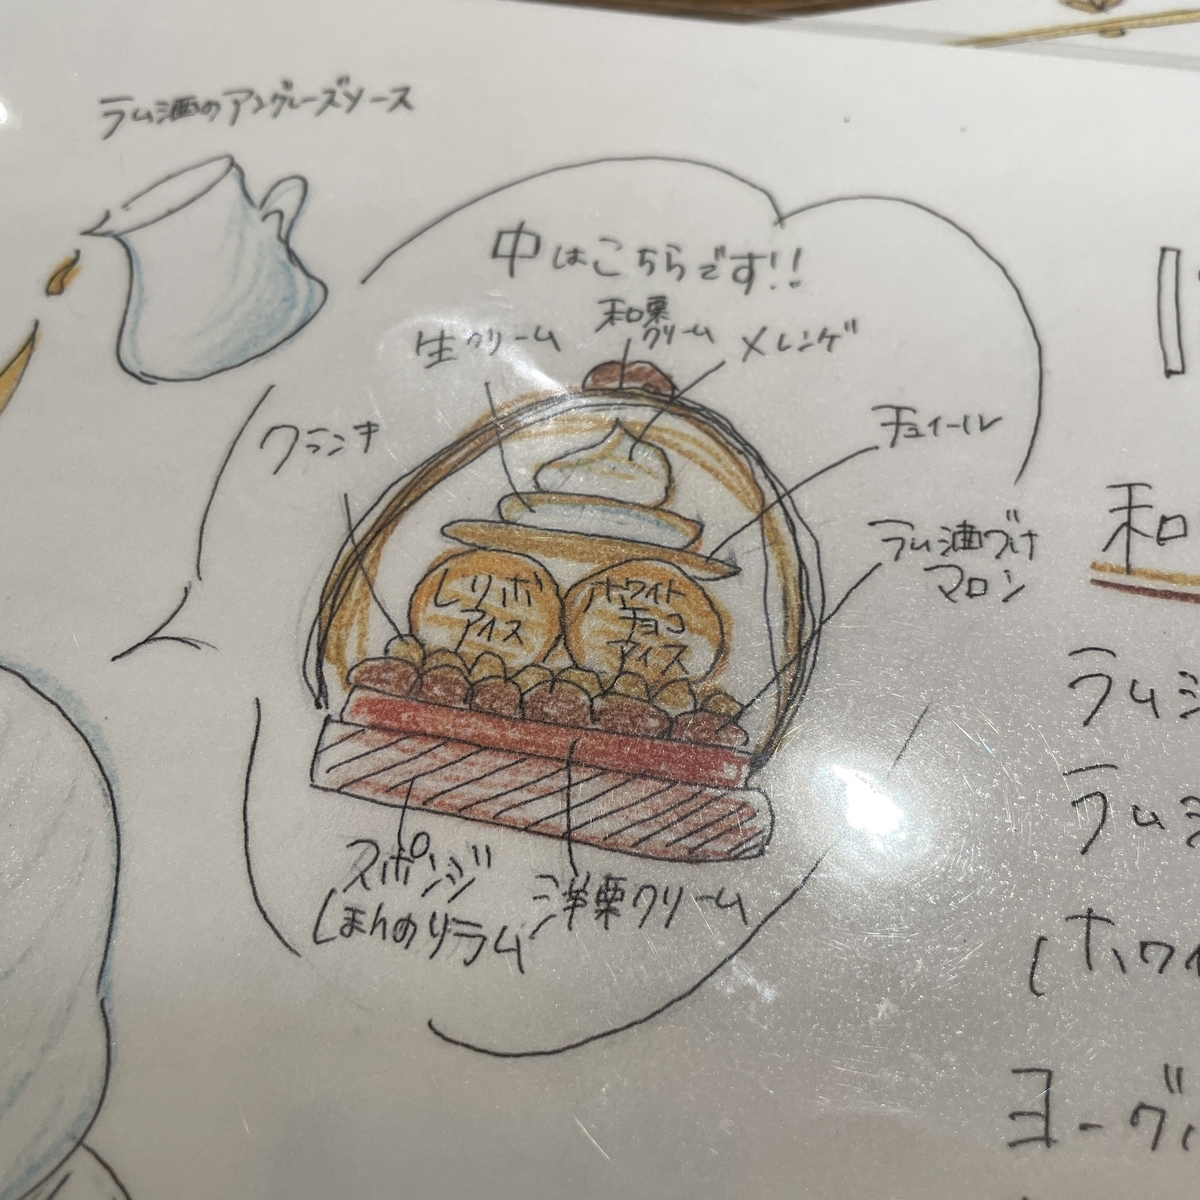 ラム酒のアングレーズソース
中はこちらです!!
生クリーム
和栗
クリーム
メレンゲ
クランチ
チュイール
ラム酒づけ
マロン
しリボ
アイス
ホワイト
チョコ
アイス
スポンジ
(ほんのりラム)
洋栗クリーム
和
ラム
ラム
(ホワイ
ヨーグ